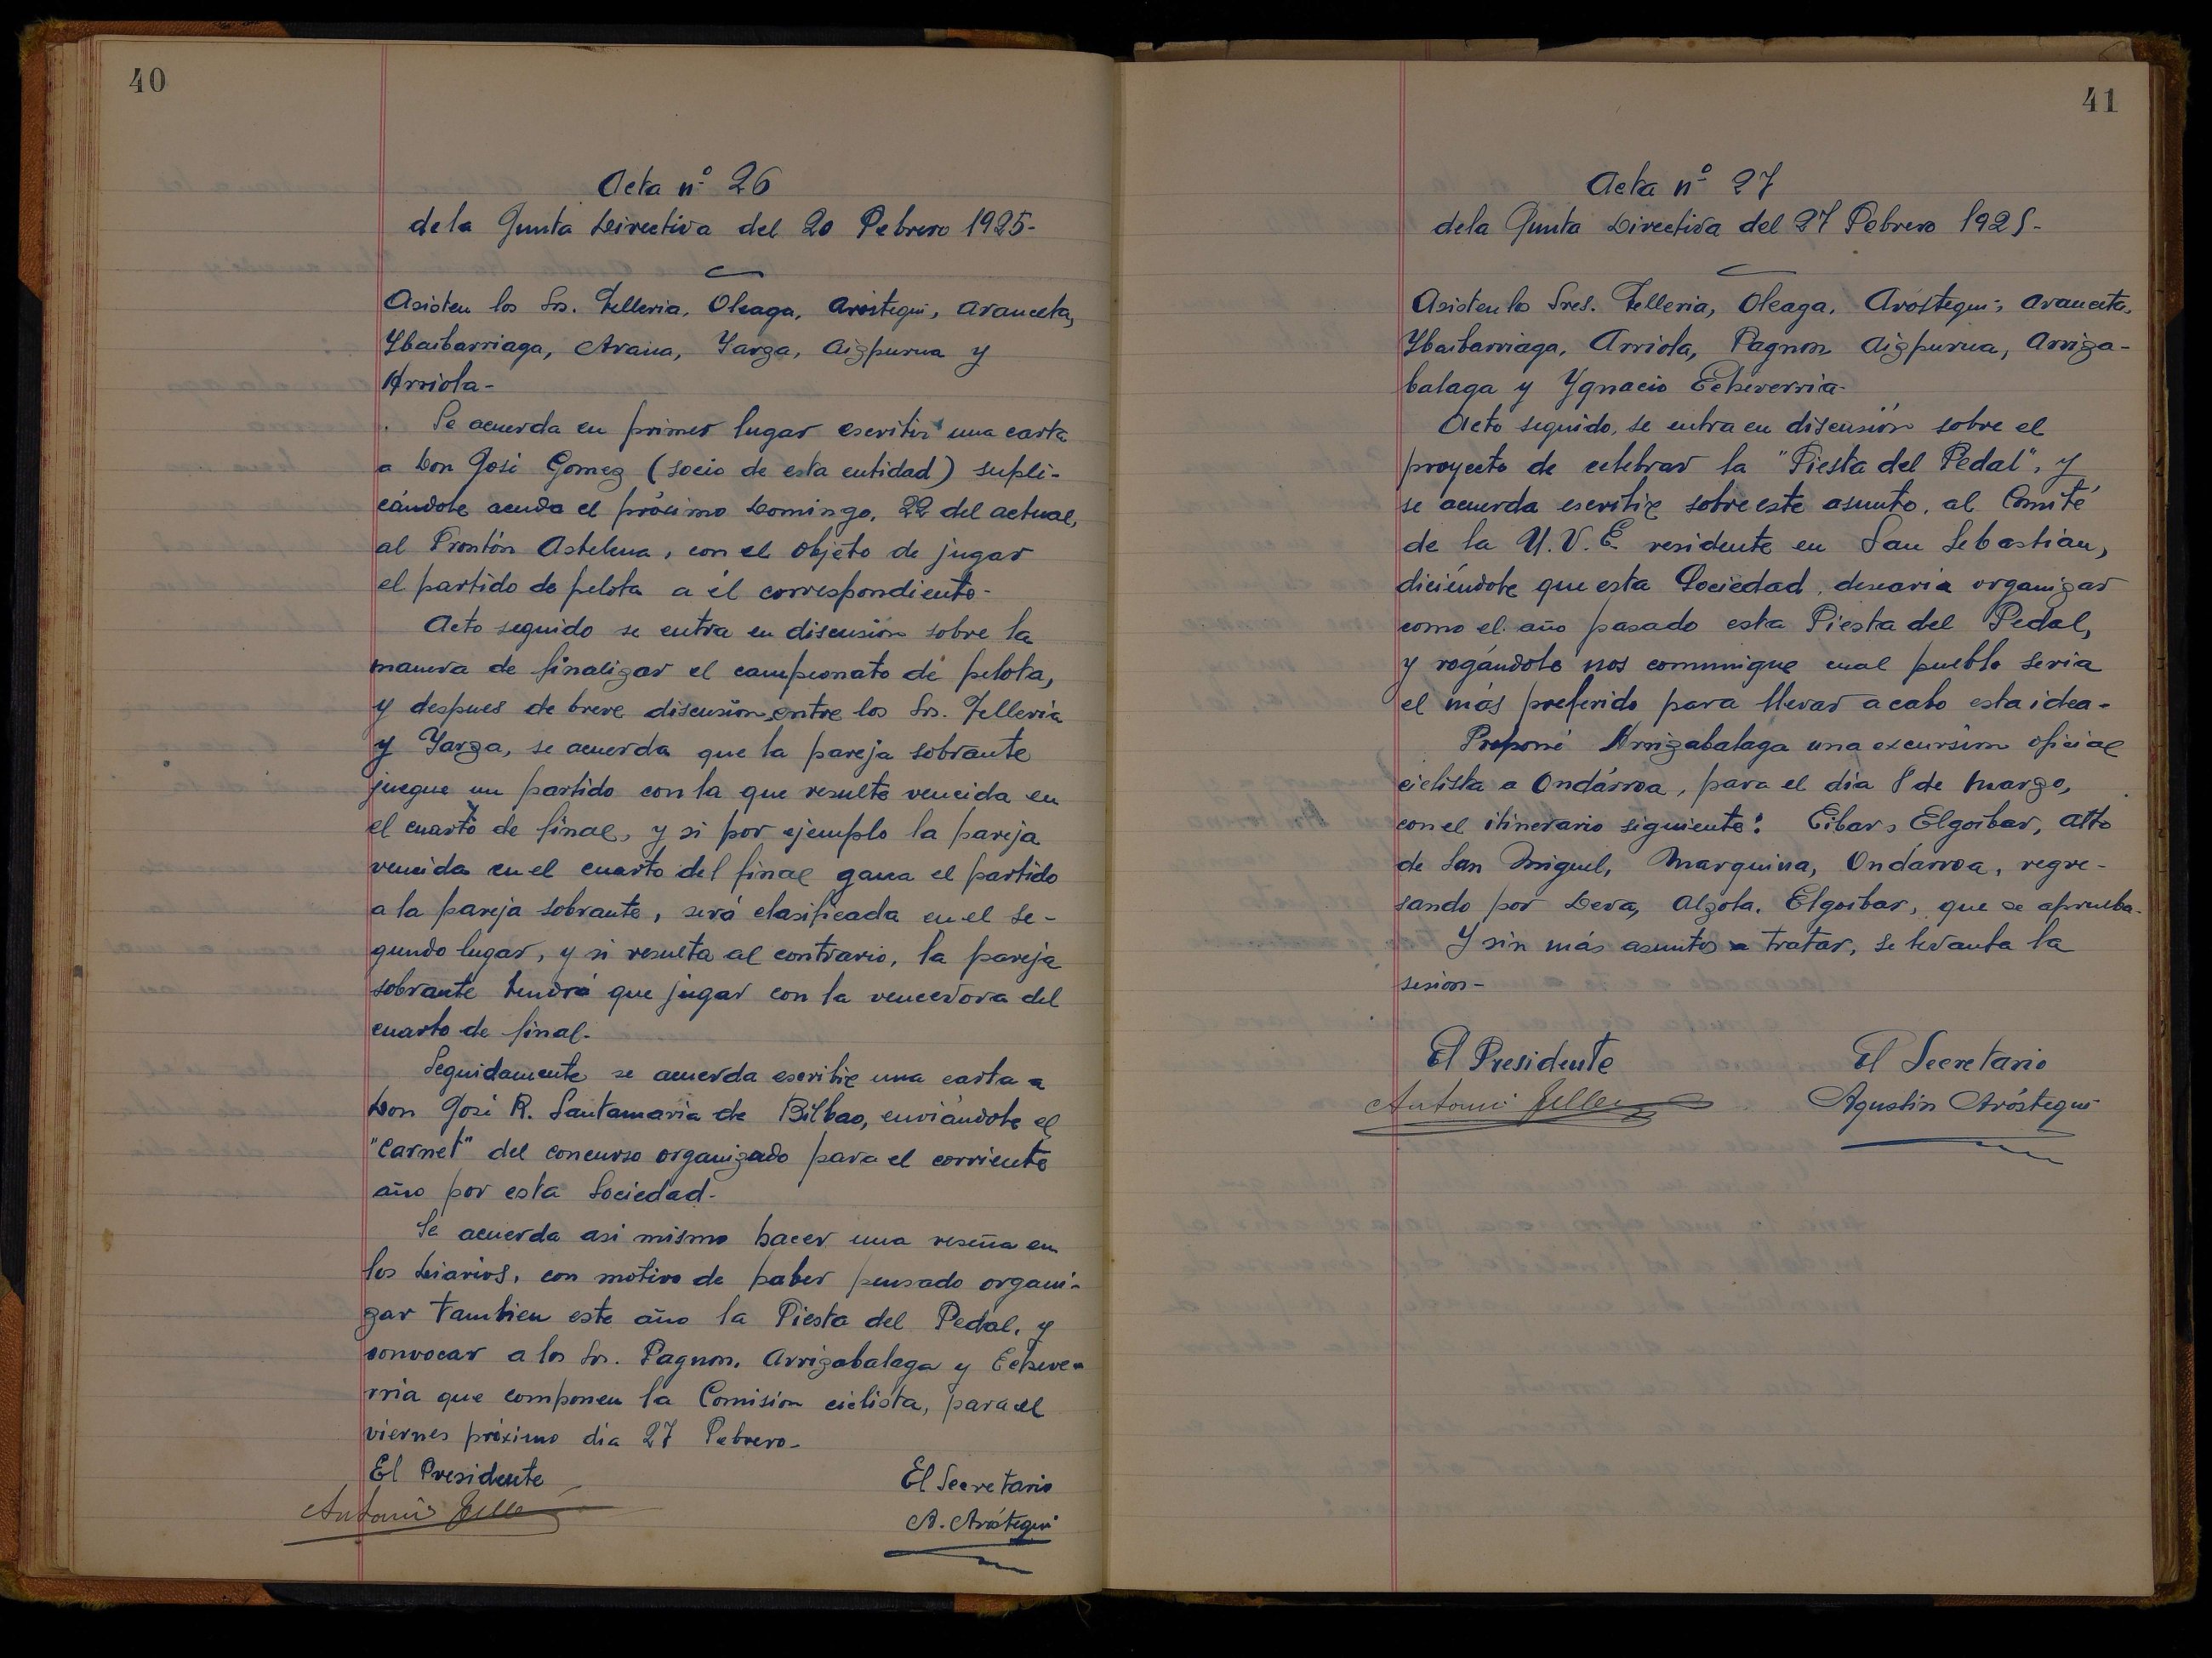 40
Acta nº 26
de la Junta Directiva del 20 Febrero 1925-
Asisten los Srs. Telleria, Oleaga, Aróstegui, Aranceta,
Ybaibarriaga, Arana, Yarza, Aizpurua y
Arriola-
Se acuerda en primer lugar escribir una carta
a Don José Gomez (socio de esta entidad) supli-
cándole acuda el próximo Domingo, 22 del actual,
al Frontón Astelena, con el objeto de jugar
el partido de pelota a él correspondiente-
Acto seguido se entra en discusión sobre la
manera de finalizar el campeonato de pelota,
y despues de breve discusión, entre los Srs. Telleria
y Yarza, se acuerda que la pareja sobrante
juegue un partido con la que resulte vencida en
el cuarto de final, y si por ejemplo la pareja
vencida en el cuarto del final gana el partido
a la pareja sobrante, será clasificada en el se-
gundo lugar, y si resulta al contrario, la pareja
sobrante tendrá que jugar con la vencedora del
cuarto de final-
Seguidamente se acuerda escribir una carta a
Don José R. Santamaria de Bilbao, enviándole el
"Carnet" del concurso organizado para el corriente
año por esta Sociedad-
Se acuerda asi mismo hacer una reseña en
los Diarios, con motivo de haber pensado organi-
zar tambien este año la Fiesta del Pedal, y
convocar a los Srs. Pagnon, Arrizabalaga y Echeve-
rria que componen la Comisión ciclista, para el
viernes próximo dia 27 Febrero-
El Presidente
El Secretario
Antonio Telleria
A. Aróstegui
41
Acta nº 27
de la Junta Directiva del 27 Febrero 1925-
Asisten los Sres. Telleria, Oleaga, Aróstegui, Aranceta,
Ybaibarriaga, Arriola, Pagnon Aizpurua, Arriza-
balaga y Ygnacio Echeverria-
Acto seguido, se entra en discusión sobre el
proyecto de celebrar la "Fiesta del Pedal", y
se acuerda escribir sobre este asunto, al Comité
de la U.V.E. residente en San Sebastian,
diciéndole que esta Sociedad, desearia organizar
como el año pasado esta Fiesta del Pedal,
y rogándole nos comunique cual pueblo seria
el más preferido para llevar a cabo esta idea-
Propone Arrizabalaga una excursión oficial
ciclista a Ondárroa, para el dia 8 de Marzo,
con el itinerario siguiente: Eibar, Elgoibar, alto
de San Miguel, Marquina, Ondárroa, regre-
sando por Deva, Alzola, Elgoibar, que se aprueba-
Y sin más asuntos a tratar, se levanta la
sesion-
El Presidente
El Secretario
Antonio Telleria
Agustin Aróstegui